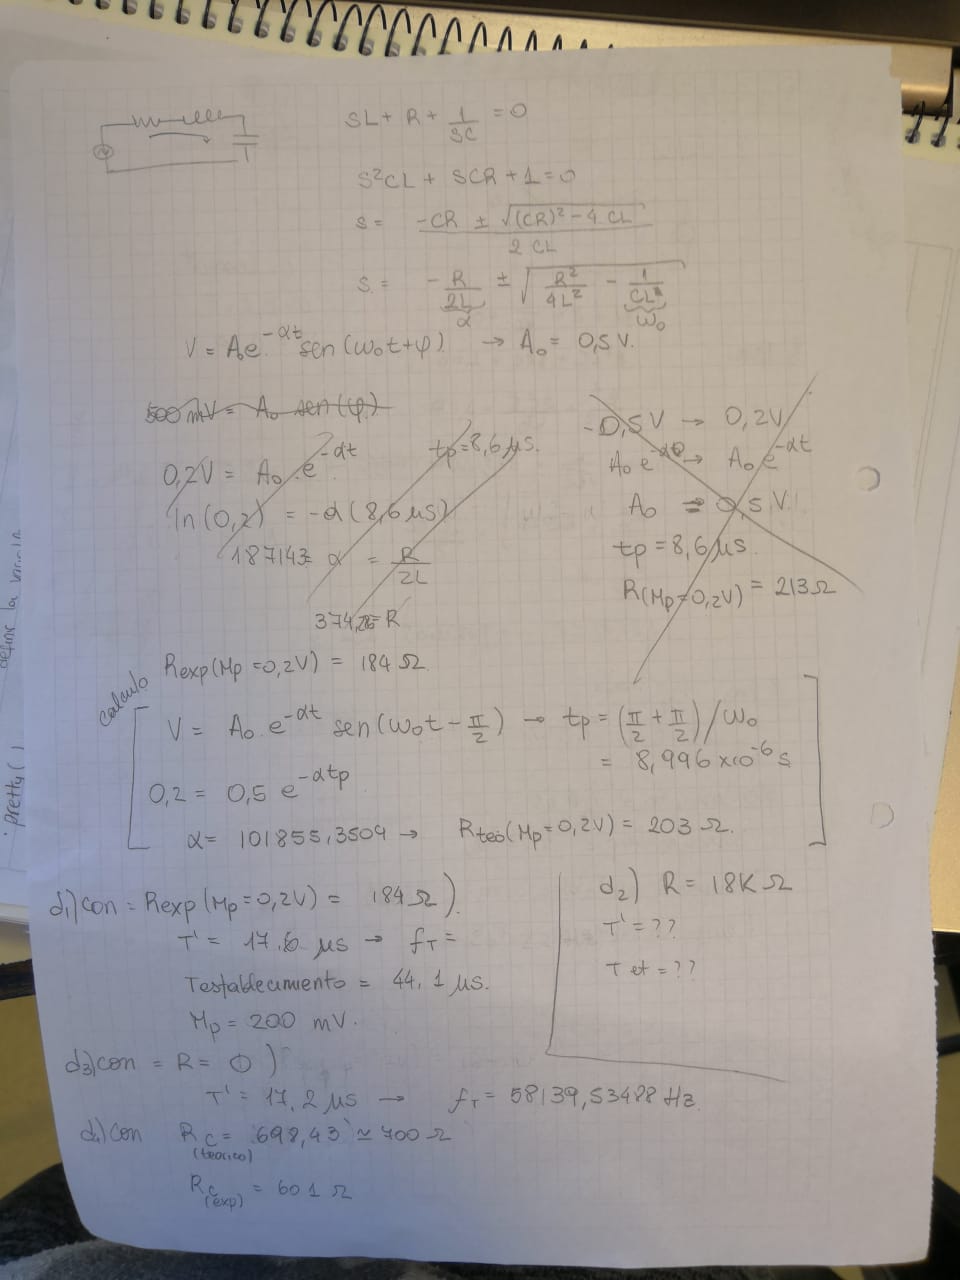 SL + R + 1/SC = 0
S²CL + SCR + 1 = 0
S = (-CR ± √((CR)² - 4 CL)) / 2 CL
S = -R/2L ± √(R²/4L² - 1/CL)
α
ω₀
V = A₀e^-αt sen(ω₀t+φ) → A₀ = 0,5 V.
500 mV = A₀ sen(φ)
0,2V = A₀ . e^-αt
tp = 8,6 μs.
ln(0,2) = -α(8,6 μs)
187143 = α = R/2L
-0,5V → 0,2V
A₀ e^-α0 → A₀ e^-αt
A₀ = 0,5 V.
tp = 8,6 μs.
R(Mp=0,2V) = 213 Ω
Rexp(Mp=0,2V) = 184 Ω.
calculo
V = A₀ . e^-αt sen(ω₀t - π/2) → tp = (π/2 + π/2)/ω₀
= 8,996 x10^-6 s
0,2 = 0,5 e^-αtp
α = 101855,3509 → Rteó(Mp=0,2V) = 203 Ω.
d₁) con = Rexp(Mp=0,2V) = 184 Ω).
T' = 17,6 μs → f_T =
Testablecimiento = 44,1 μs.
Mp = 200 mV.
d₂) R = 18K Ω
T' = ??
T et = ??
d₃) con = R = 0)
T' = 17,2 μs → f_T = 58139,53488 Hz.
d₄) con Rc = 698,43 ≃ 700 Ω
(teorico)
Rc = 601 Ω
(exp)
pretty(
definir la